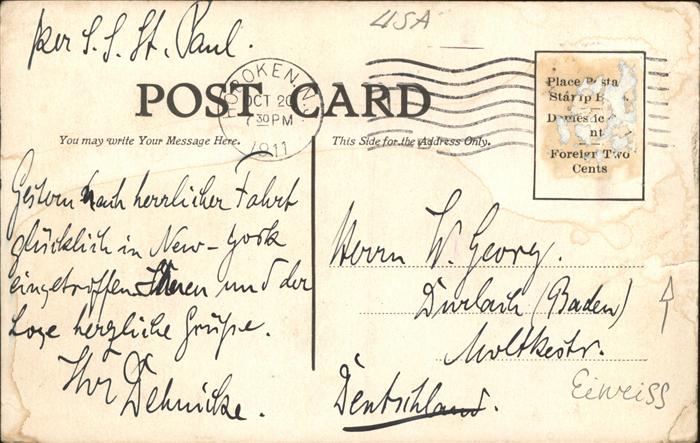 per S. S. St. Paul.
USA
POST CARD
HOBOKEN, N.J.
OCT 20
7 30 PM
1911
Place Posta
Stamp
Domestic
nt
Foreign Two
Cents
You may write Your Message Here.
This Side for the Address Only.
Gestern nach herrlicher Fahrt
glücklich in New-York
eingetroffen Ihnen und der
Loge herzliche Grüße.
Ihr Dehnicke.
Herrn W. Georg.
Durlach (Baden)
Moltkestr.
Deutschland.
Eiweiss